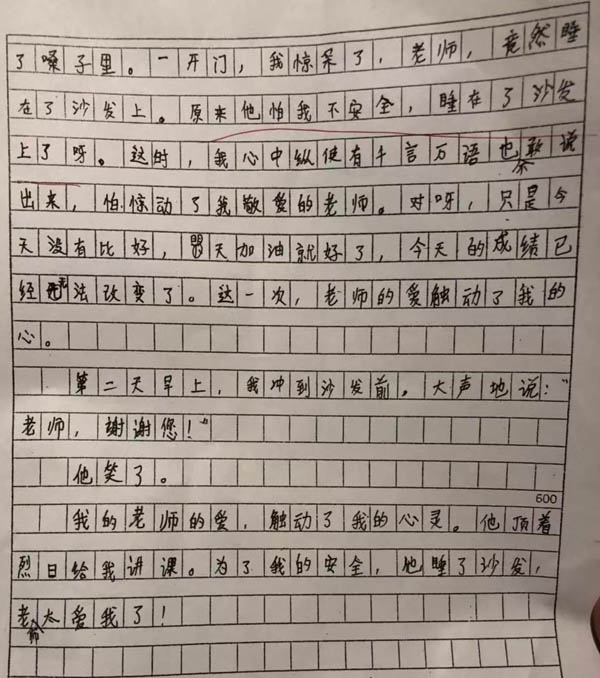 了嗓子里。一开门，我惊呆了，老师，竟然睡
在了沙发上。原来他怕我不安全，睡在了沙发
上了呀。这时，我心中纵使有千言万语也不敢说
出来，怕惊动了我敬爱的老师。对呀，只是今
天没有比好，明天加油就好了，今天的成绩已
经无法改变了。这一次，老师的爱触动了我的
心。
第二天早上，我冲到沙发前。大声地说：“
老师，谢谢您！”
他笑了。
600
我的老师的爱，触动了我的心灵。他顶着
烈日给我讲课。为了我的安全，他睡了沙发，
老师太爱我了！